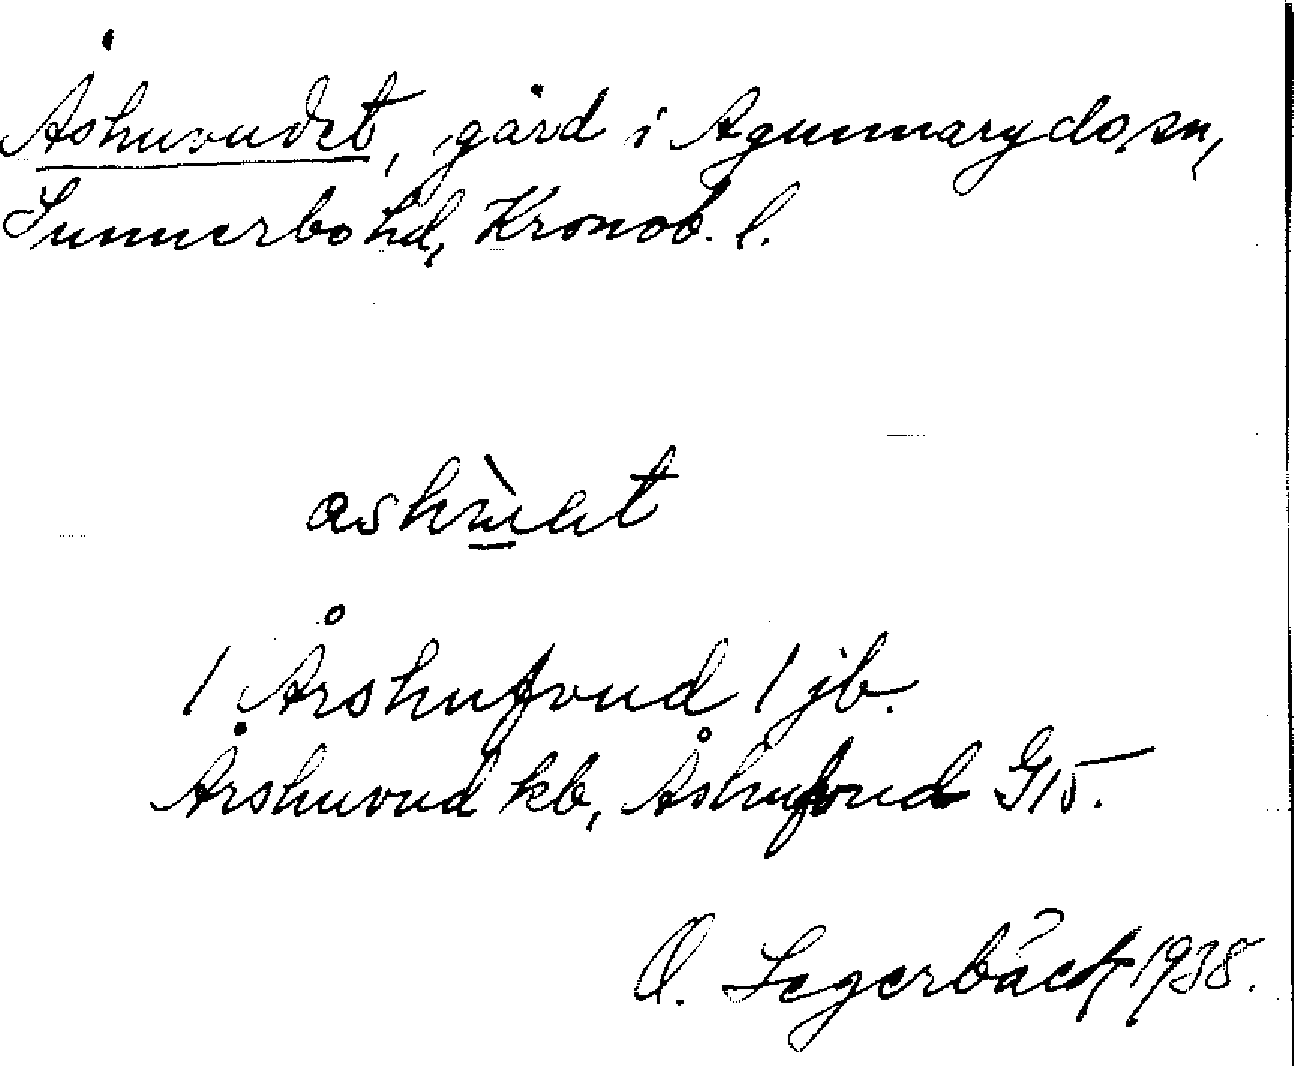 Åshuvudet, gård i Agunnaryds sn,
Sunnerbo hd, Kronob. l.
1 Årshufvud 1 jb.
Årshuvud kb, Åshufvud G15.
O. Segerbäck 1938.